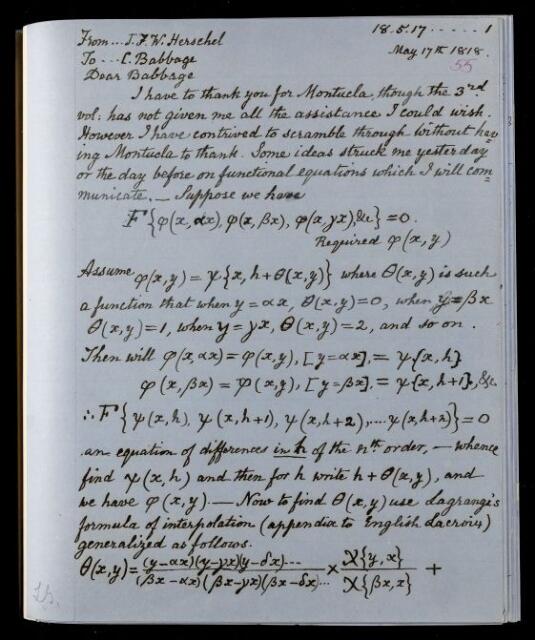 18.5.17 ..... 1
From... J.F.W. Herschel
May 17th 1818.
To... C. Babbage
55
Dear Babbage
I have to thank you for Montucla, though the 3rd
vol: has not given me all the assistance I could wish.
However I have contrived to scramble through without hav=
ing Montucla to thank. Some ideas struck me yesterday
or the day before on functional equations which I will com=
municate. — Suppose we have
F{φ(x, αx), φ(x, βx), φ(x, γx), &c} = 0.
Required φ(x, y)
Assume φ(x, y) = ψ{x, h + θ(x, y)} where θ(x, y) is such
a function that when y = αx, θ(x, y) = 0, when y = βx
θ(x, y) = 1, when y = γx, θ(x, y) = 2, and so on.
Then will φ(x, αx) = φ(x, y), [y = αx], = ψ{x, h}
φ(x, βx) = φ(x, y), [y = βx], = ψ{x, h+1}, &c.
∴ F{ψ(x, h), ψ(x, h+1), ψ(x, h+2), .... ψ(x, h+n)} = 0
an equation of differences in h of the nth order, — whence
find ψ(x, h) and then for h write h + θ(x, y), and
we have φ(x, y). — Now to find θ(x, y) use Lagrange's
formula of interpolation (appendix to English Lacroix)
generalized as follows.
θ(x, y) = (y−αx)(y−γx)(y−δx)... / (βx−αx)(βx−γx)(βx−δx)... × χ{y, x} / χ{βx, x} +